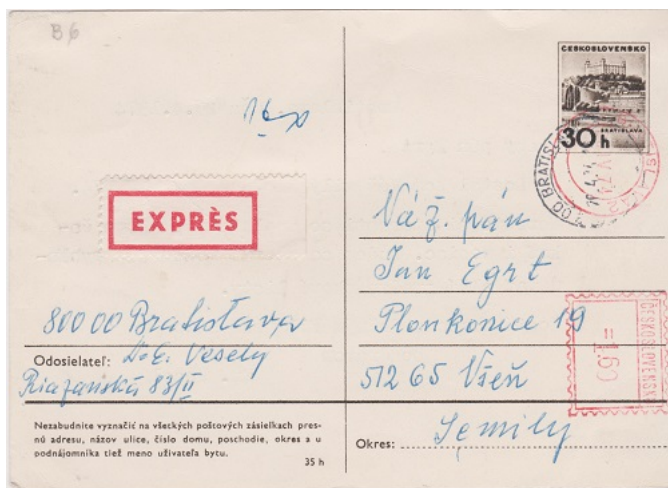 B6
EXPRÈS
800 00 Bratislava
Odosielateľ: Dr. E. Vesely
Riazanská 83/II
Nezabudnite vyznačiť na všetkých poštových zásielkach pres-
nú adresu, názov ulice, číslo domu, poschodie, okres a u
podnájomníka tiež meno užívateľa bytu.
35 h
ČESKOSLOVENSKO
BRATISLAVA
30 h
BRATISL
Váž. pán
Jan Egrt
Plonkonice 19
512 65 Všeň
Okres: Semily
ČESKOSLOVENSKO
=1.60